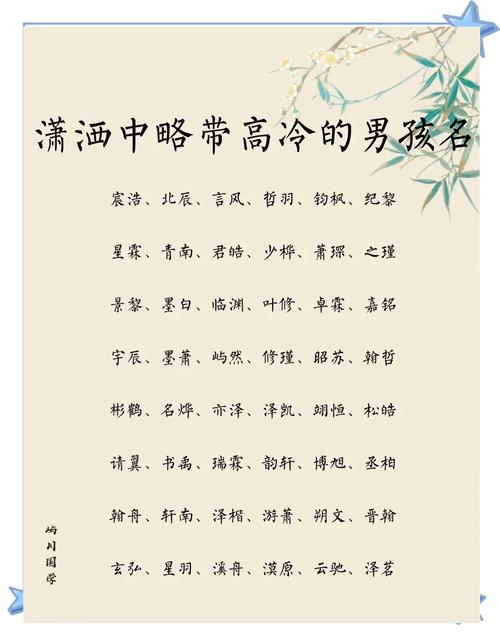 潇洒中略带高冷的男孩名
宸浩、北辰、言风、哲羽、钧枫、纪黎
星霖、青南、君皓、少桦、萧琛、之瑾
景黎、墨白、临渊、叶修、卓霖、嘉铭
宇辰、墨萧、屿然、修瑾、昭苏、翰哲
彬鹤、名烨、亦泽、泽凯、翊恒、松皓
请翼、书禹、瑞霖、韵轩、博旭、丞柏
翰舟、轩南、泽楷、游萧、朔文、晋翰
玄弘、星羽、溪舟、漠原、云驰、泽茗
屿川国学